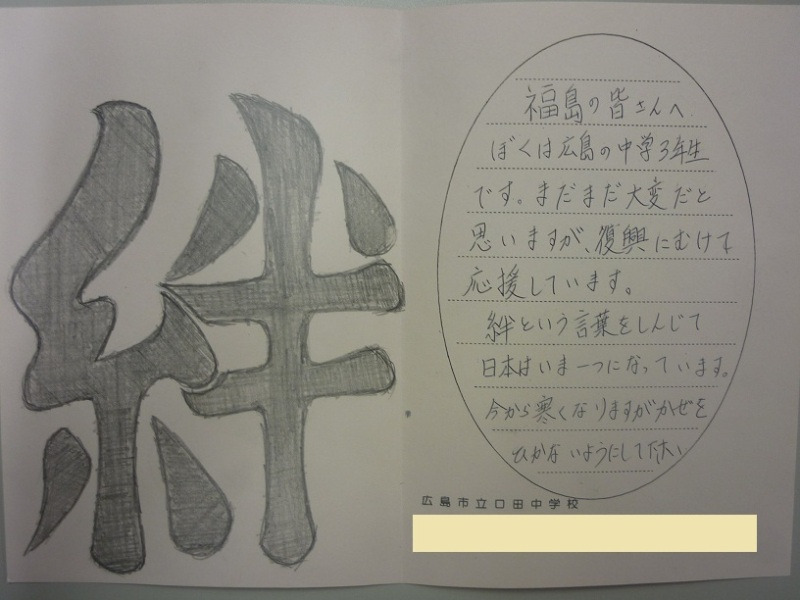 絆
福島の皆さんへ
ぼくは広島の中学3年生
です。まだまだ大変だと
思いますが、復興にむけて
応援しています。
絆という言葉をしんじて
日本はいま一つになっています。
今から寒くなりますがかぜを
ひかないようにして下さい
広島市立口田中学校